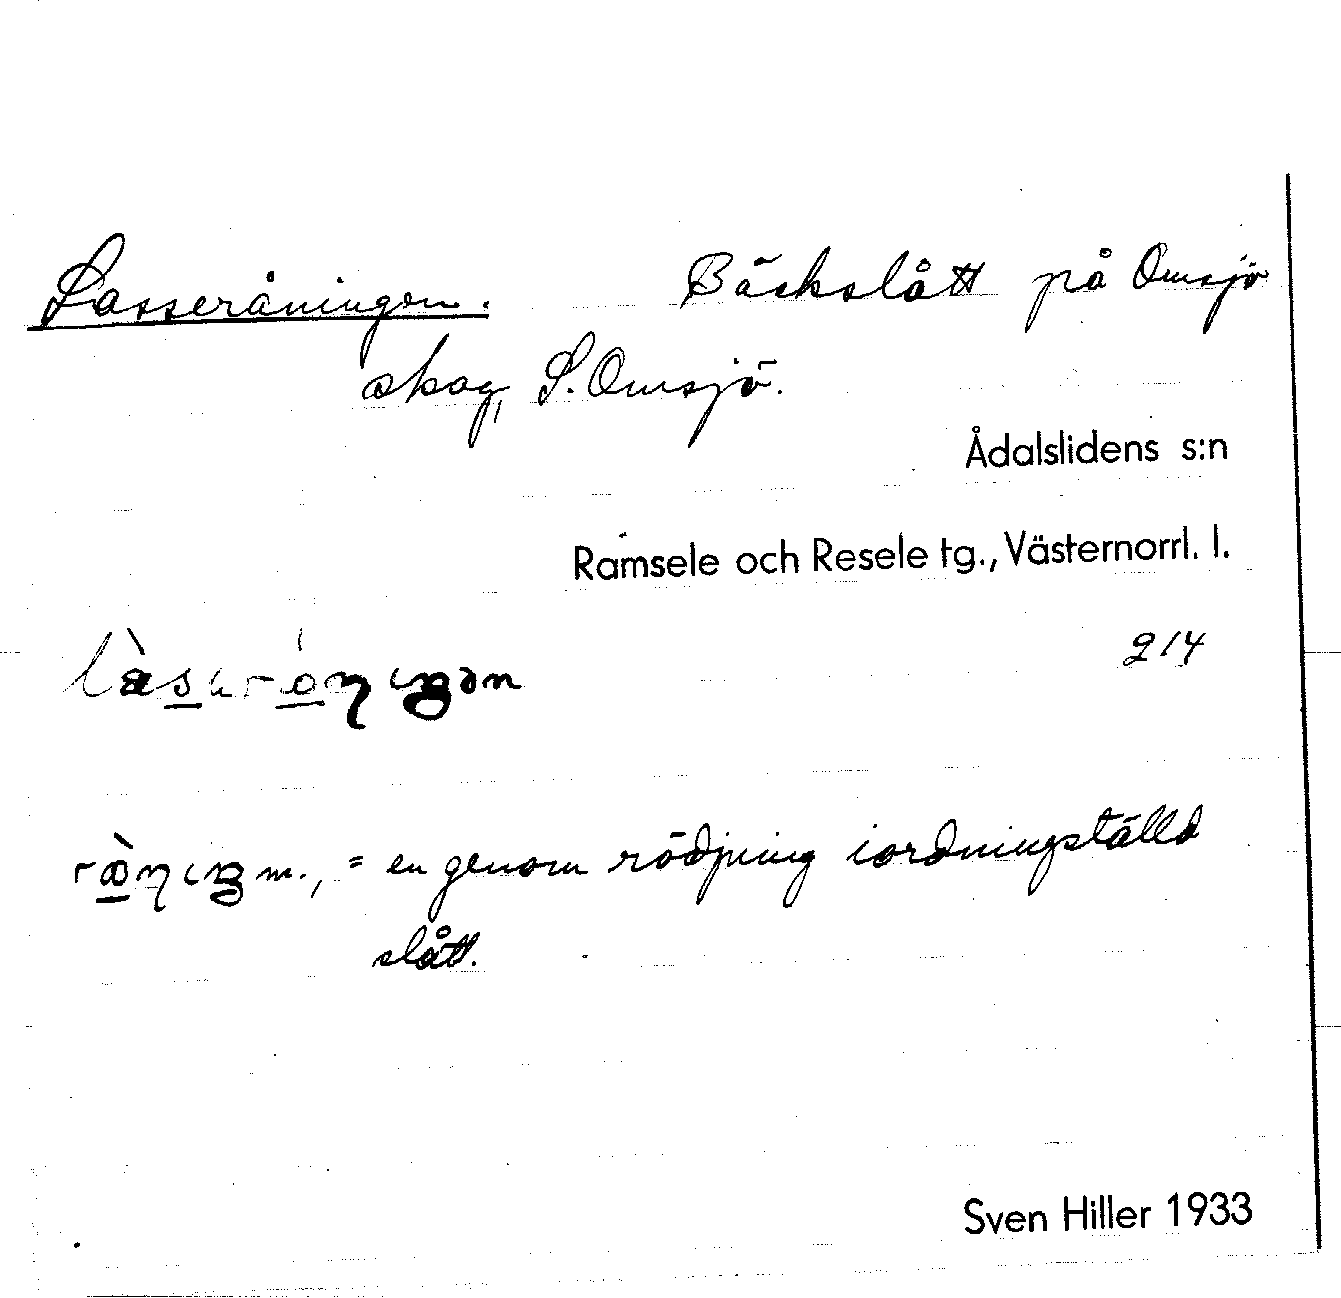 Lasseråningen. Bäckslått på Omsjö
skog, S. Omsjö.
Ådalslidens s:n
Ramsele och Resele tg., Västernorrl. l.
214
m., = en genom rödjning iordningställd
slått.
Sven Hiller 1933